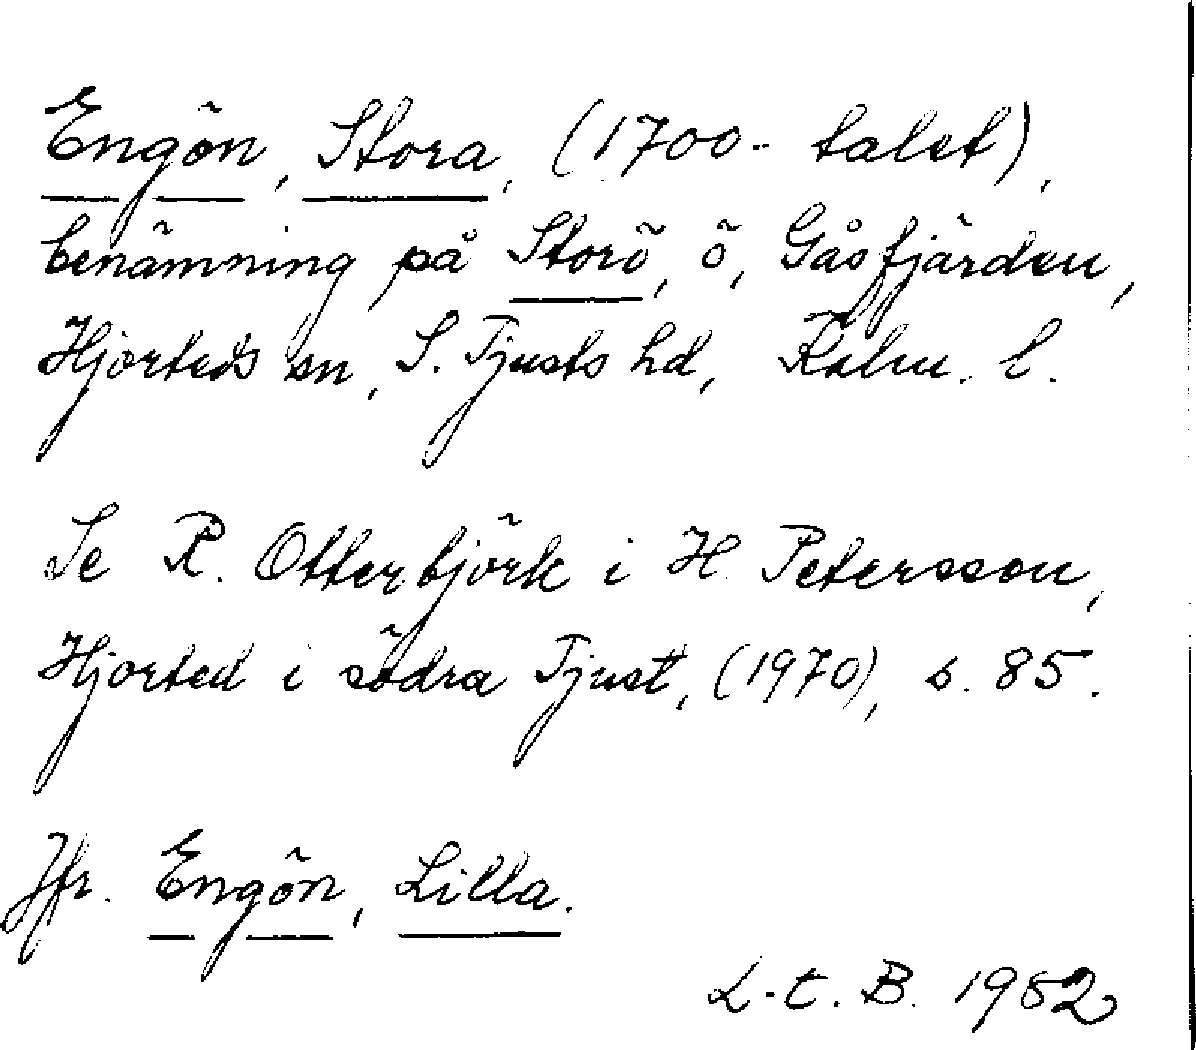 Engön, Stora, (1700-talet),
benämning på Storö, ö, Gåsfjärden,
Hjorteds sn, S. Tjusts hd, Kalm. l.
Se R. Otterbjörk i H. Petersson,
Hjorted i södra Tjust, (1970), s. 85.
Jfr. Engön, Lilla.
L.t. B. 1982